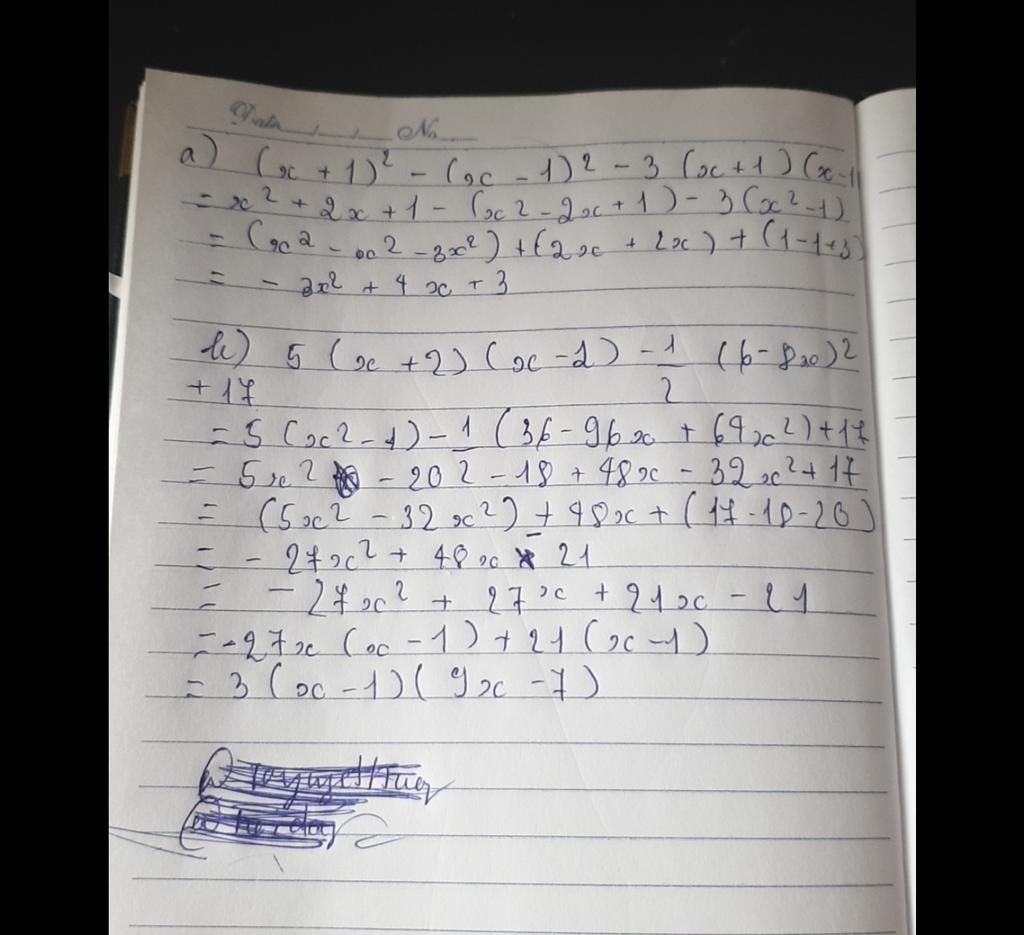 Date . . . No.
a) (x + 1)² - (x - 1)² - 3 (x + 1) (x - 1)
= x² + 2x + 1 - (x² - 2x + 1) - 3(x² - 1)
= (x² - x² - 3x²) + (2x + 2x) + (1 - 1 + 3)
= - 3x² + 4x + 3
b) 5 (x + 2) (x - 2) - 1/2 (6 - 8x)²
+ 17
= 5 (x² - 4) - 1 (36 - 96x + 64x²) + 17
= 5x² - 20² - 18 + 48x - 32x² + 17
= (5x² - 32x²) + 48x + (17 - 18 - 20)
= - 27x² + 48x - 21
= - 27x² + 27x + 21x - 21
= - 27x (x - 1) + 21 (x - 1)
= 3 (x - 1) ( 9x - 7)